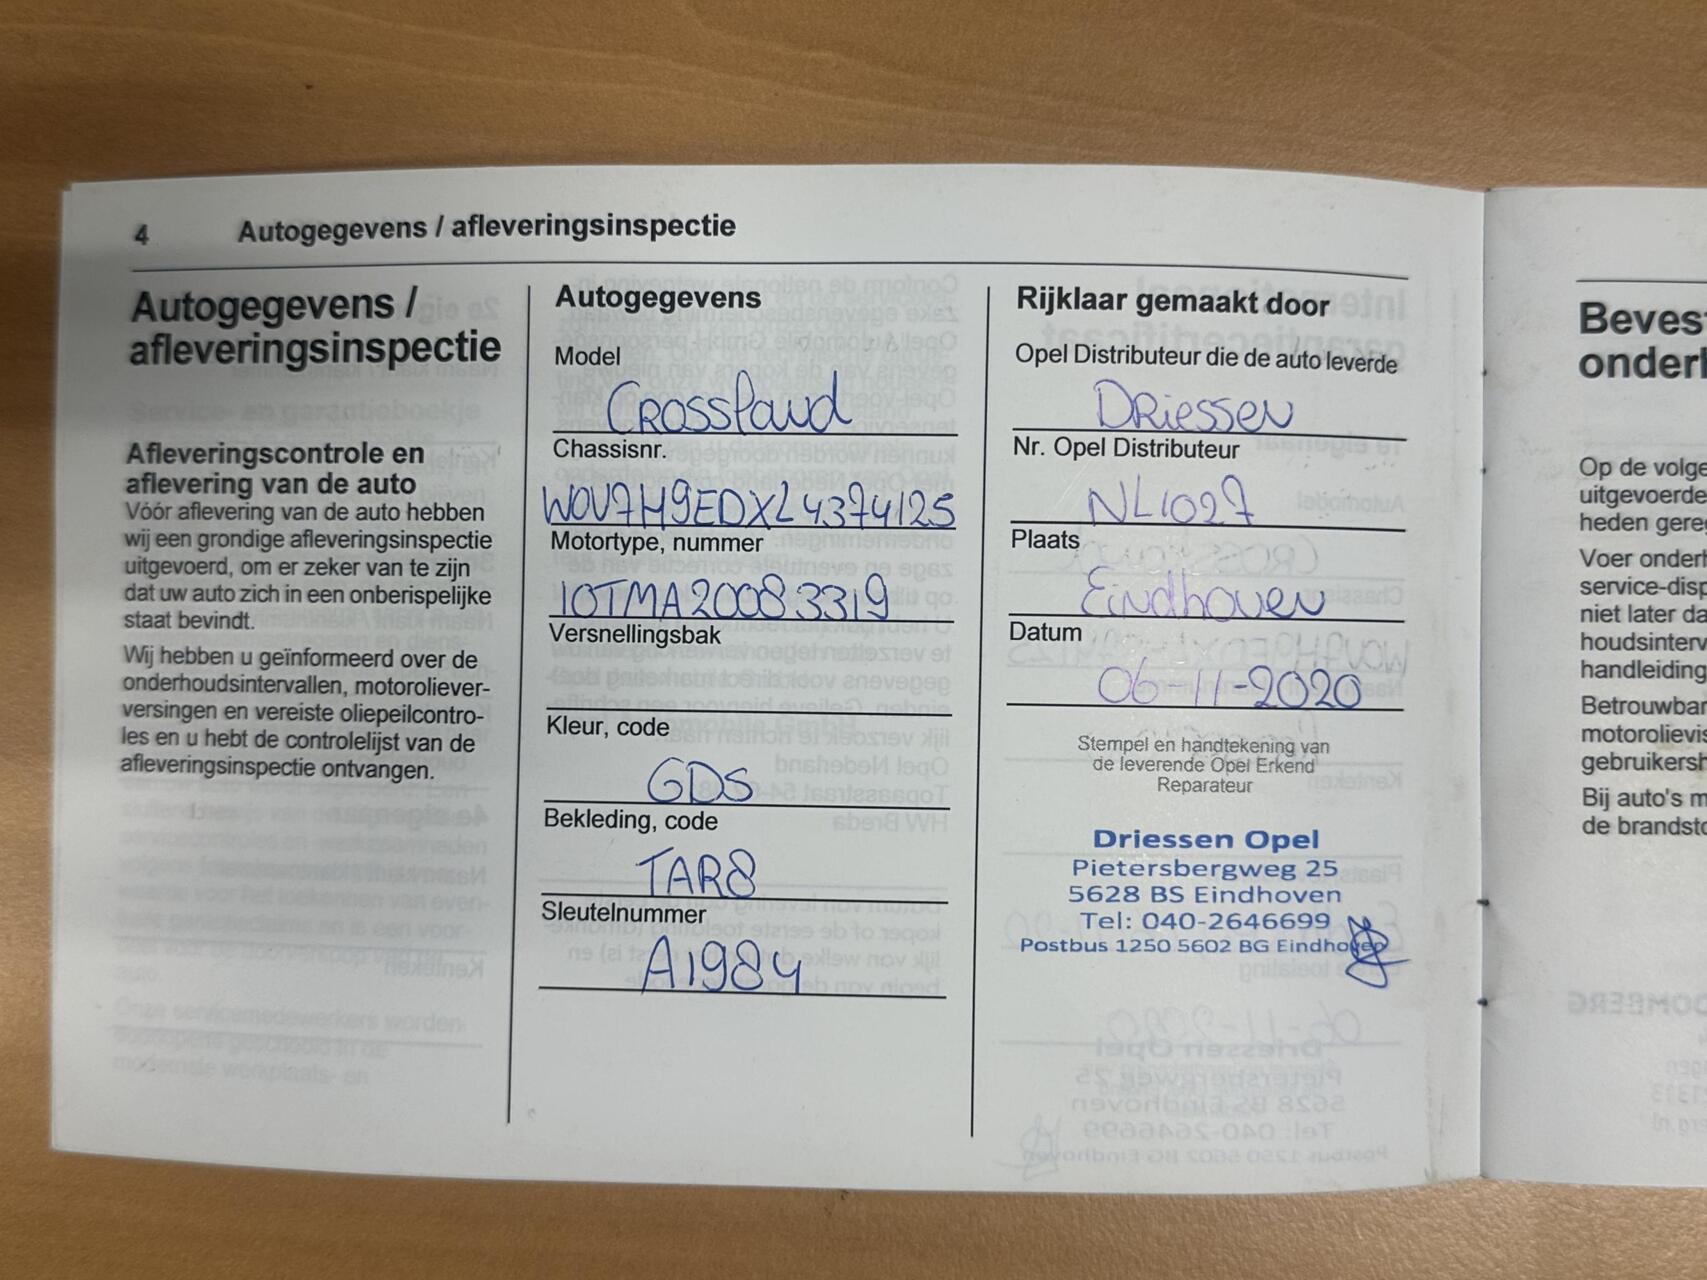 4 Autogegevens / afleveringsinspectie
Autogegevens /
afleveringsinspectie
Afleveringscontrole en
aflevering van de auto
Vóór aflevering van de auto hebben
wij een grondige afleveringsinspectie
uitgevoerd, om er zeker van te zijn
dat uw auto zich in een onberispelijke
staat bevindt.
Wij hebben u geïnformeerd over de
onderhoudsintervallen, motoroliever-
versingen en vereiste oliepeilcontro-
les en u hebt de controlelijst van de
afleveringsinspectie ontvangen.
Autogegevens
Model
Crossland
Chassisnr.
W0V7H9EDXL4374125
Motortype, nummer
10TMA20083319
Versnellingsbak
Kleur, code
GDS
Bekleding, code
TAR8
Sleutelnummer
A1984
Rijklaar gemaakt door
Opel Distributeur die de auto leverde
Driessen
Nr. Opel Distributeur
NL1027
Plaats
Eindhoven
Datum
06-11-2020
Stempel en handtekening van
de leverende Opel Erkend
Reparateur
Driessen Opel
Pietersbergweg 25
5628 BS Eindhoven
Tel: 040-2646699
Postbus 1250 5602 BG Eindhoven
Beves
onderh
Op de volge
uitgevoerde
heden gere
Voer onderh
service-disp
niet later da
houdsinterv
handleiding
Betrouwbar
motorolievis
gebruikersh
Bij auto's m
de brandsto